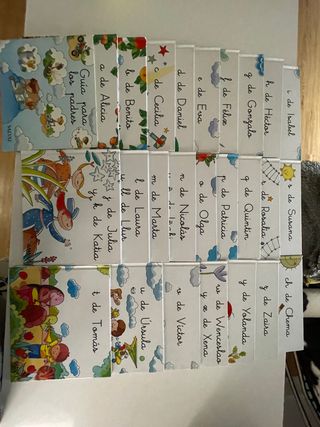 Guía para
los padres
SALDAÑA
a de Alicia
b de Benito
c de Cecilia
d de Daniel
e de Eva
f de Félix
g de Gonzalo
h de Héctor
i de Isabel
j de Julia
y k de Katia
l de Laura
y ll de Lluis
m de Marta
n de Nicolás
o de Olga
p de Patricia
q de Quintín
r de Rosalía
s de Susana
t de Tomás
u de Úrsula
v de Víctor
w de Wenceslao
y x de Xena
y de Yolanda
z de Zaira
ch de Chema